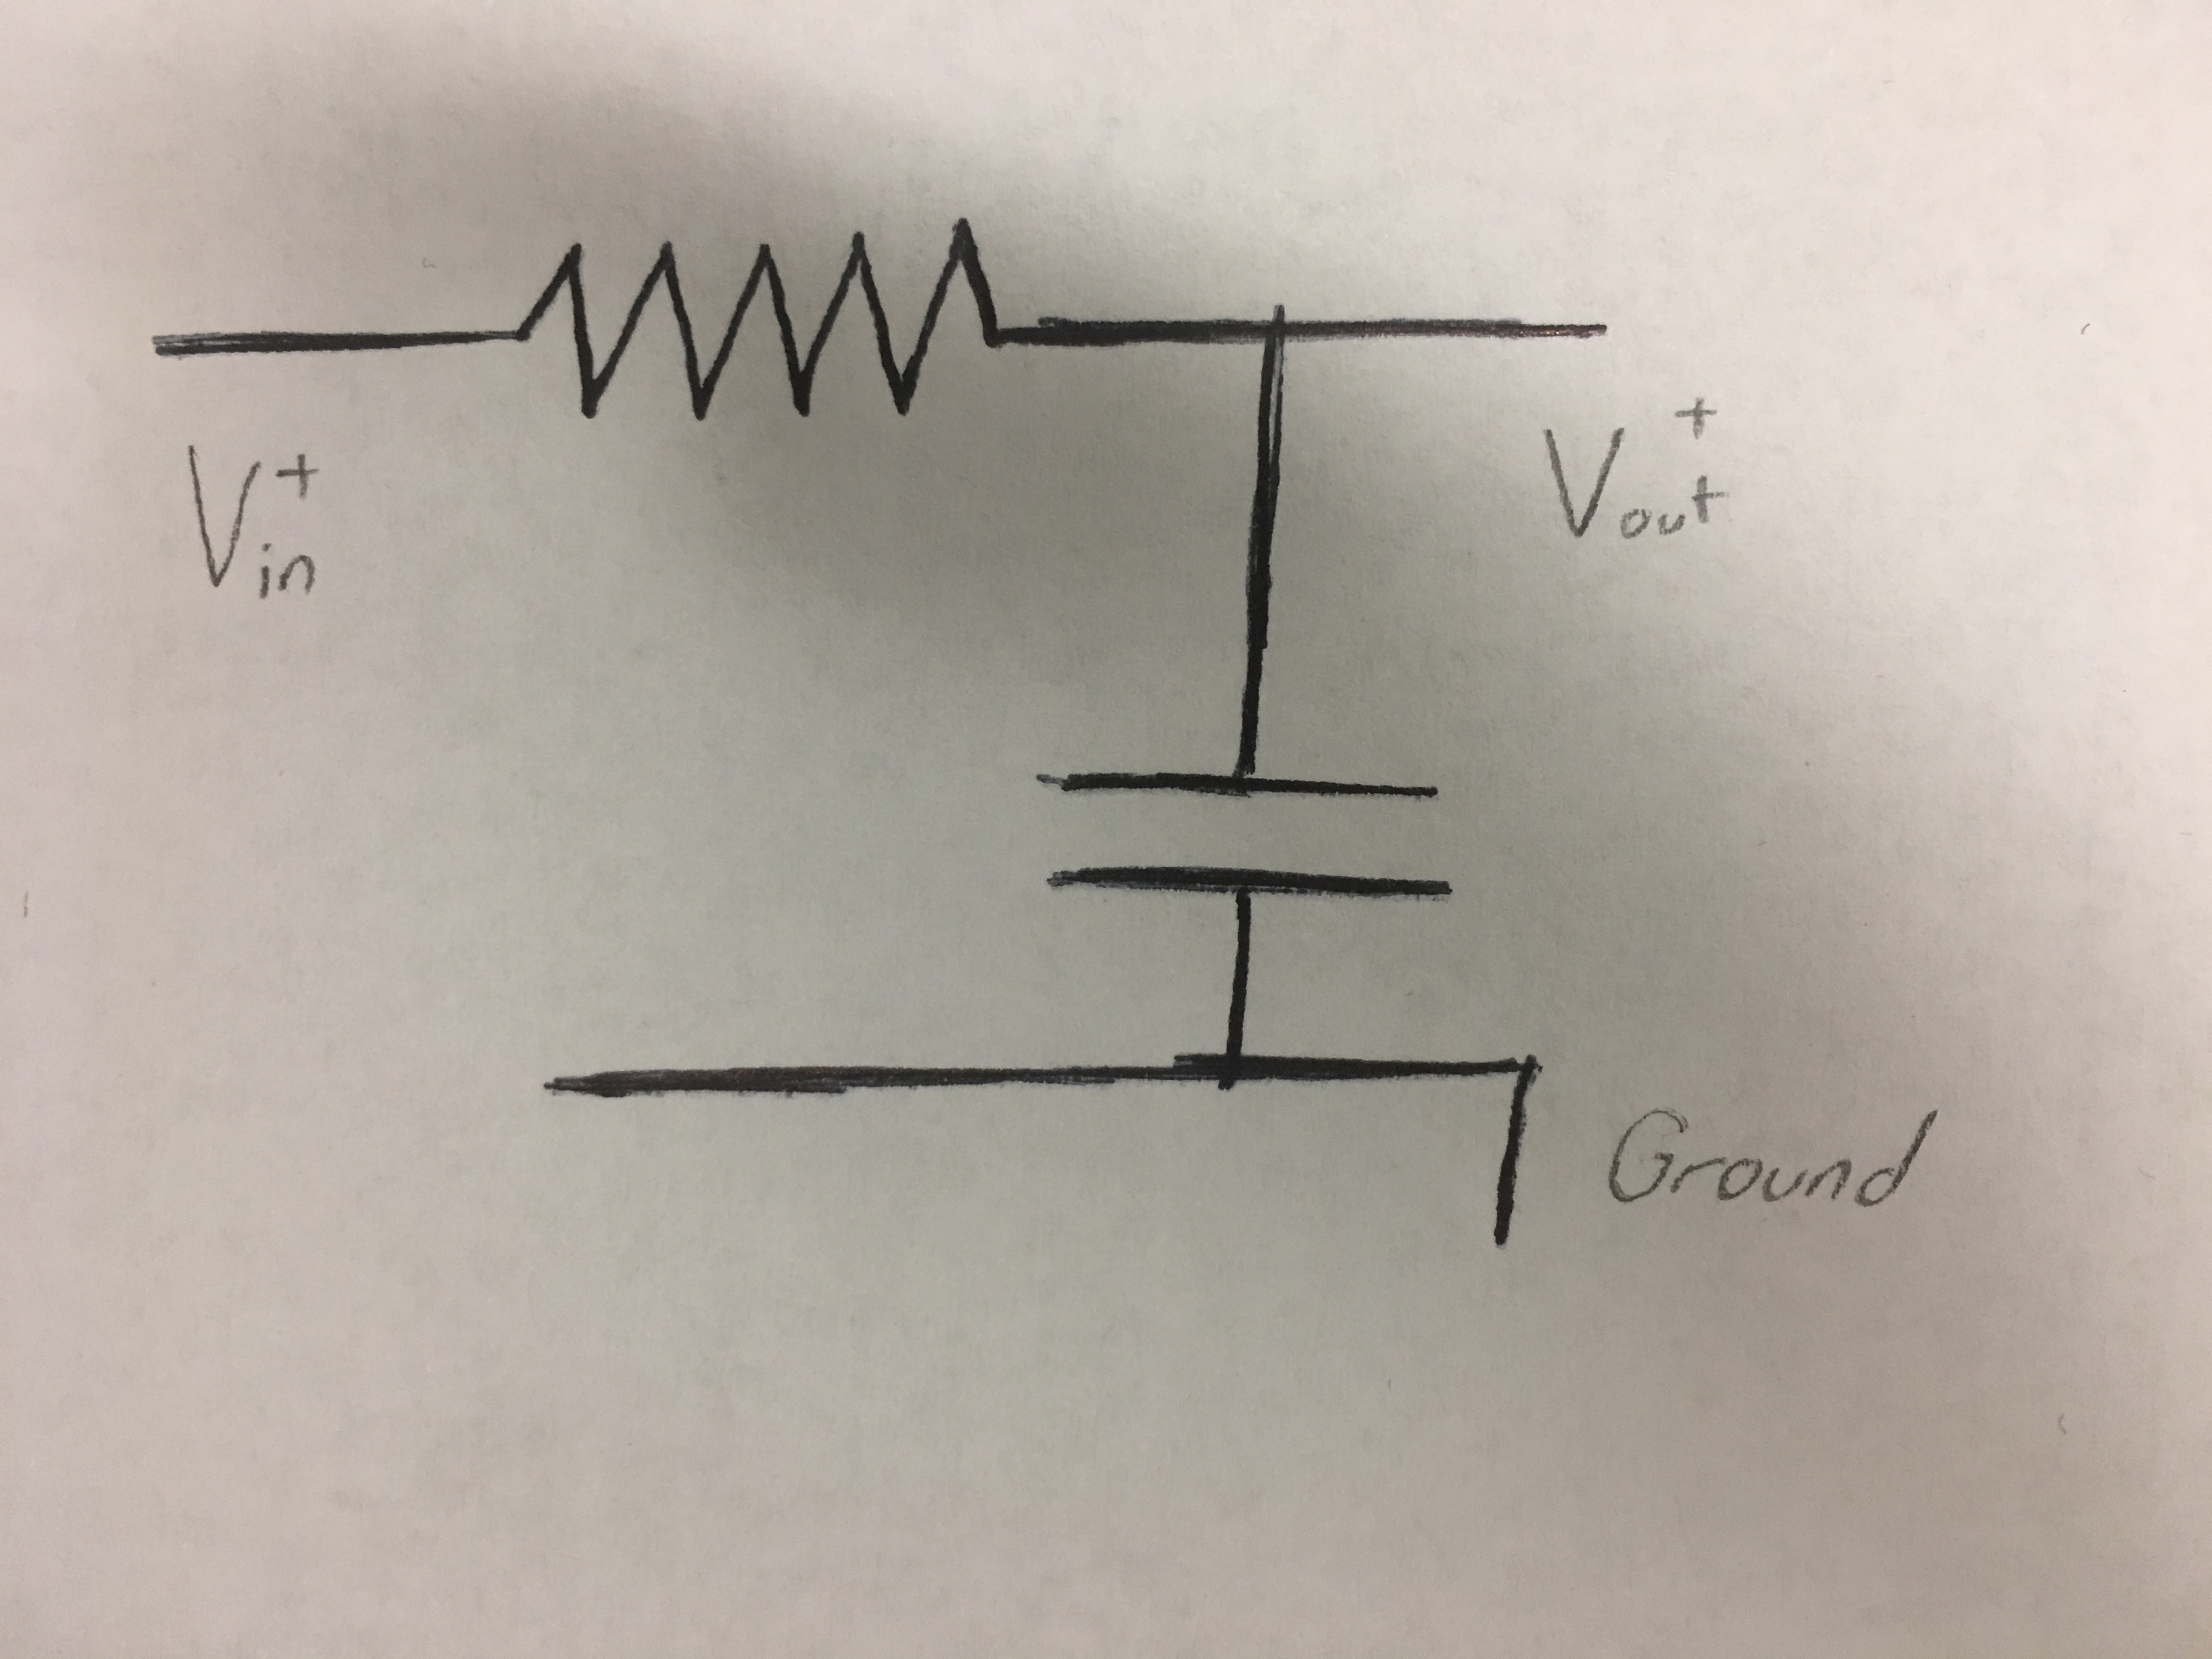 V+in
V+out
Ground